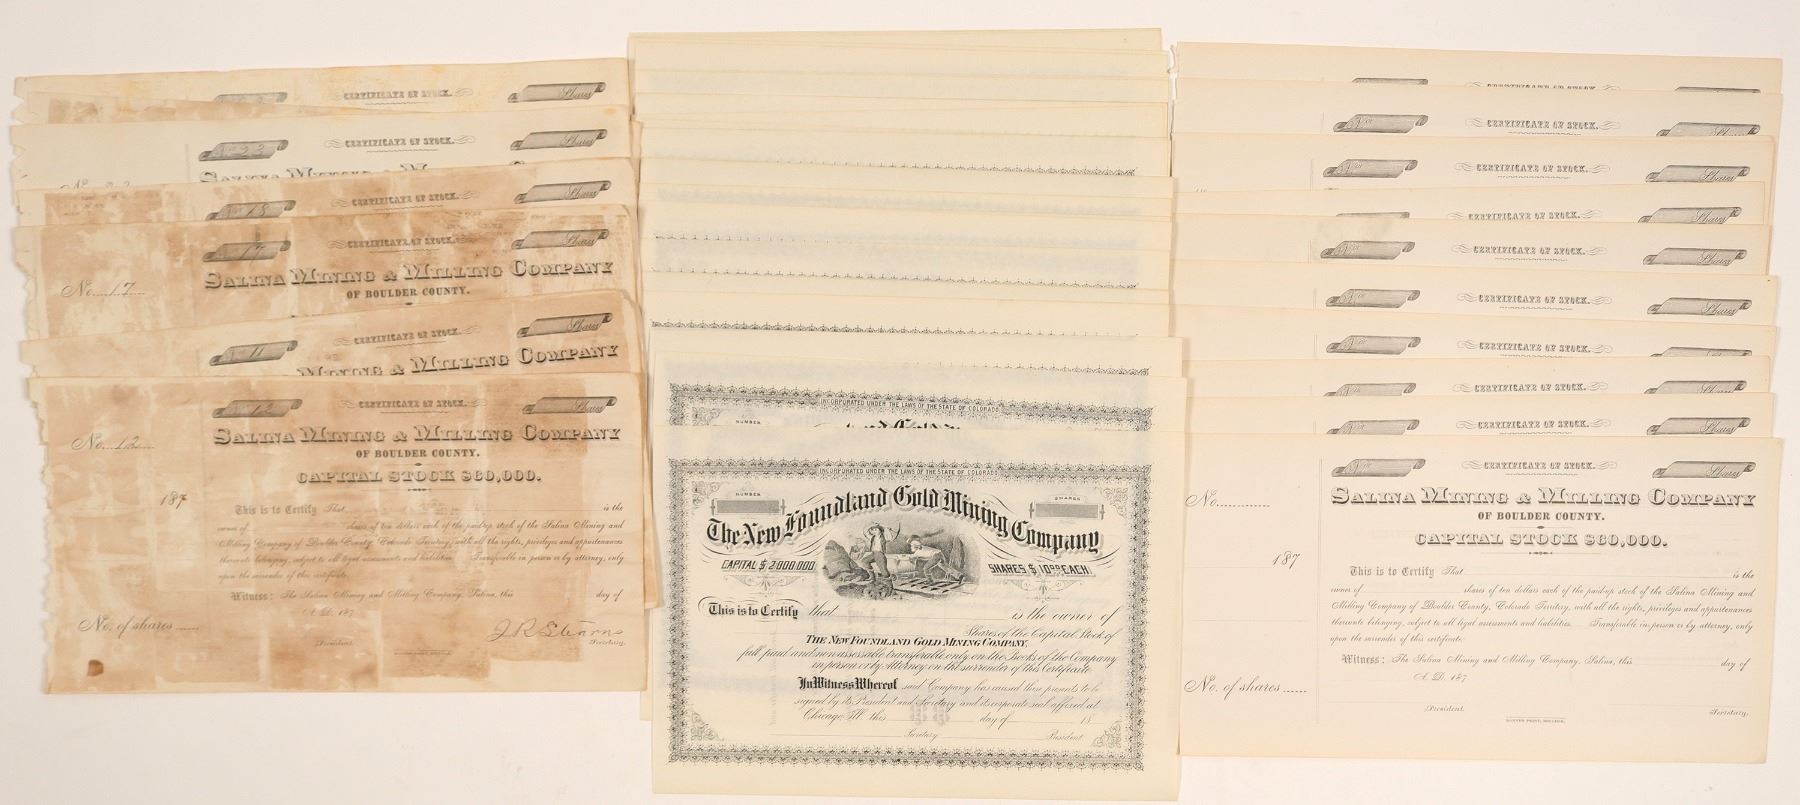 CERTIFICATE OF STOCK.
Shares
No 23
CERTIFICATE OF STOCK.
Shares
SALINA MINING &
No 18
CERTIFICATE OF STOCK.
Shares
No 17
CERTIFICATE OF STOCK.
Shares
SALINA MINING & MILLING COMPANY
OF BOULDER COUNTY.
No. 17
No 11
CERTIFICATE OF STOCK.
Shares
MINING & MILLING COMPANY
No 12
CERTIFICATE OF STOCK.
Shares
No. 12
SALINA MINING & MILLING COMPANY
OF BOULDER COUNTY.
CAPITAL STOCK $60,000.
187
This is to Certify That is the
owner of shares of ten dollars each of the paid-up stock of the Salina Mining and
Milling Company of Boulder County, Colorado Territory, with all the rights, privileges and appurtenances
thereunto belonging, subject to all legal assessments and liabilities. Transferable in person or by attorney, only
upon the surrender of this certificate.
Witness: The Salina Mining and Milling Company, Salina, this day of
A. D. 187
No. of shares
J R Stearns
President.
Secretary.
INCORPORATED UNDER THE LAWS OF THE STATE OF COLORADO
NUMBER
INCORPORATED UNDER THE LAWS OF THE STATE OF COLORADO
NUMBER
SHARES
The New Foundland Gold Mining Company
CAPITAL $2.000.000
SHARES $10.00 EACH.
This is to Certify that is the owner of
Shares of the Capital Stock of
THE NEW FOUNDLAND GOLD MINING COMPANY,
full paid and non assessable transferable only on the Books of the Company
in person or by Attorney on the surrender of this Certificate
In Witness Whereof said Company has caused these presents to be
signed by its President and Secretary and its corporate seal affixed at
Chicago Ill. this day of 18
Secretary
President
CERTIFICATE OF STOCK.
No
CERTIFICATE OF STOCK.
No
CERTIFICATE OF STOCK.
Shares
CERTIFICATE OF STOCK.
Shares
No
CERTIFICATE OF STOCK.
Shares
No
CERTIFICATE OF STOCK.
Shares
No
CERTIFICATE OF STOCK.
No
CERTIFICATE OF STOCK.
Shares
No
CERTIFICATE OF STOCK.
Shares
No
CERTIFICATE OF STOCK.
Shares
No.
SALINA MINING & MILLING COMPANY
OF BOULDER COUNTY.
CAPITAL STOCK $60,000.
187
This is to Certify That is the
owner of shares of ten dollars each of the paid-up stock of the Salina Mining and
Milling Company of Boulder County, Colorado Territory, with all the rights, privileges and appurtenances
thereunto belonging, subject to all legal assessments and liabilities. Transferable in person or by attorney, only
upon the surrender of this certificate.
Witness: The Salina Mining and Milling Company, Salina, this day of
A. D. 187
No. of shares
President.
Secretary.
BANNER PRINT, BOULDER.